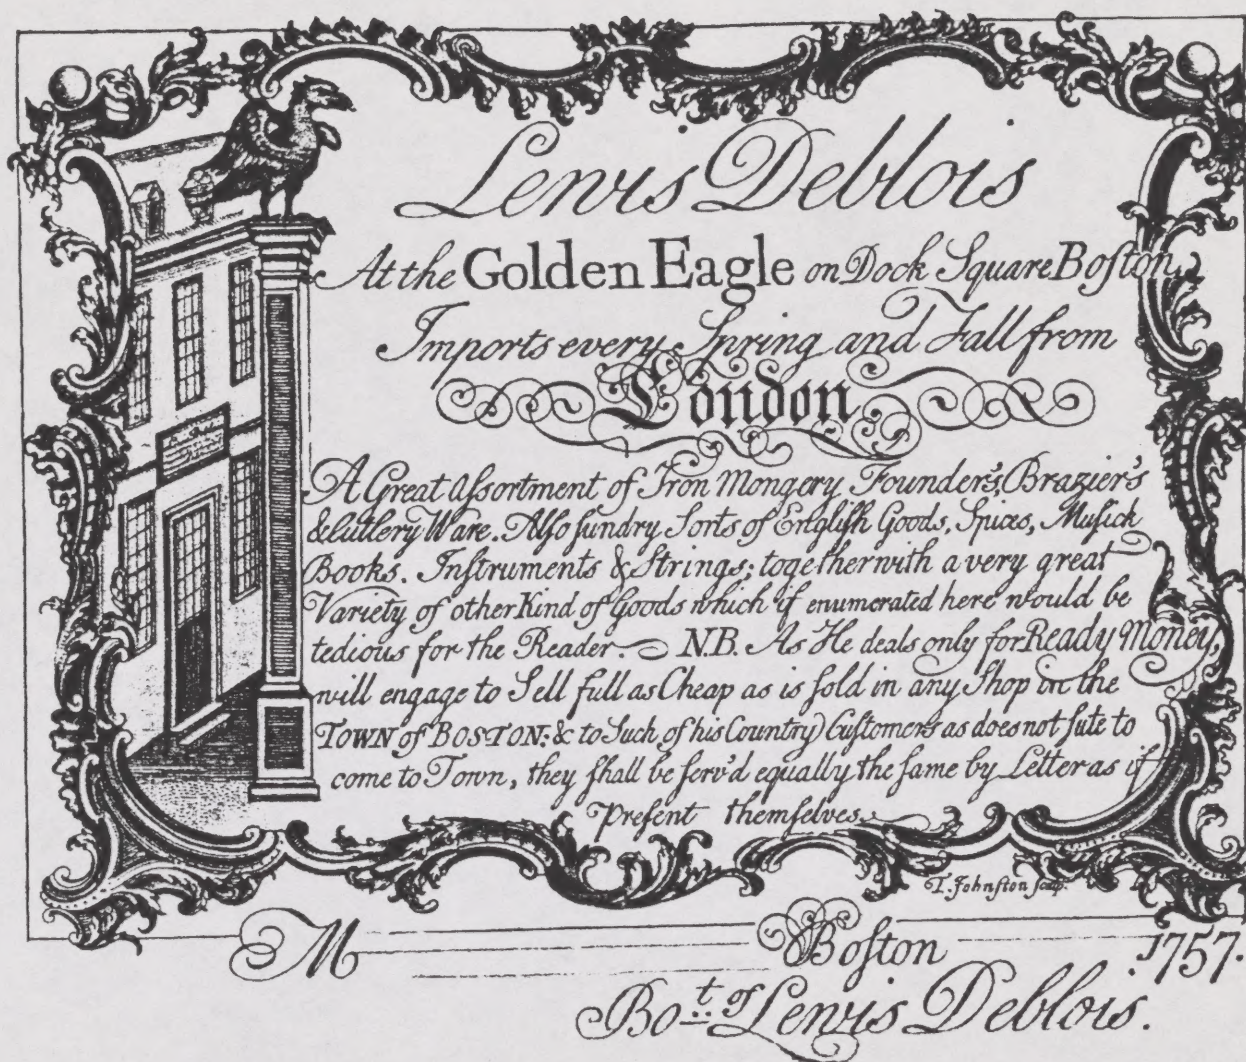 Lewis Deblois
At the Golden Eagle on Dock Square Boſton,
Imports every Spring and Fall from
London,
A Great Aſsortment of Iron Mongery Founder's, Brazier's
& Cutlery Ware. Alſo ſundry Sorts of Engliſh Goods, Spices, Muſick
Books. Inſtruments & Strings; together with a very great
Variety of other Kind of Goods which if enumerated here would be
tedious for the Reader. N.B. As He deals only for Ready Money,
will engage to Sell full as Cheap as is ſold in any Shop in the
TOWN of BOSTON: & to Such of his Country Cuſtomers as does not ſute to
come to Town, they ſhall be ſerv'd equally the ſame by Letter as if
Preſent themſelves.
T. Johnſton ſculp.
M Boſton 1757.
Bo.t of Lewis Deblois.